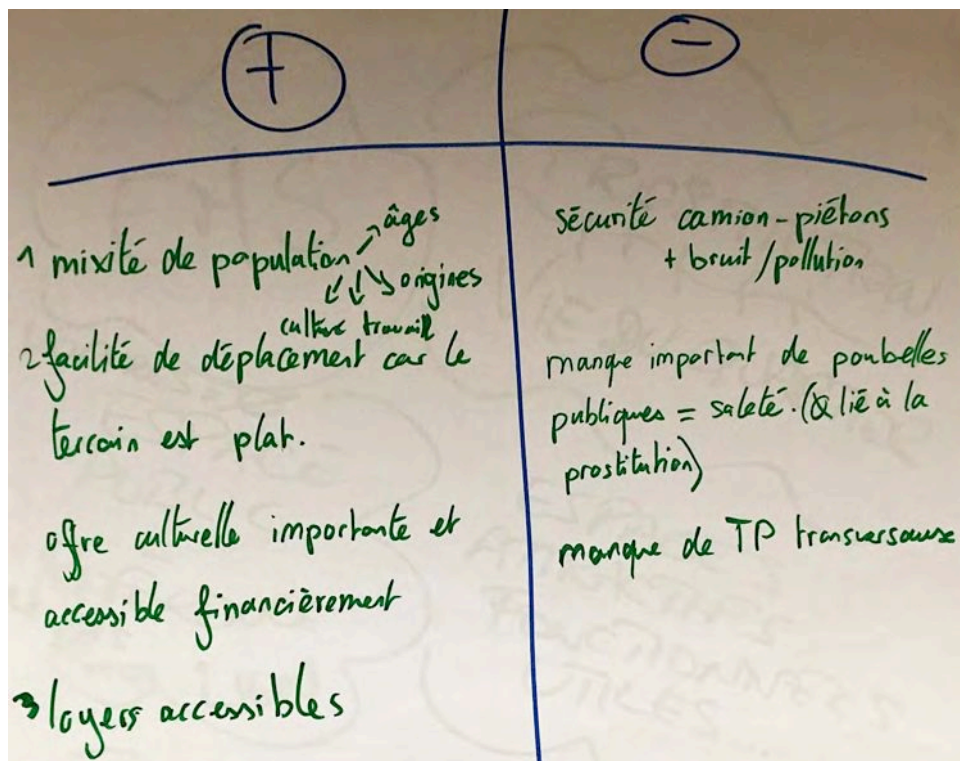 +
1 mixité de population
âges
origines
culture travail
2 facilité de déplacement car le
terrain est plat.
offre culturelle importante et
accessible financièrement
3 loyers accessibles
-
sécurité camion-piétons
+ bruit/pollution
manque important de poubelles
publiques = saleté. (& lié à la
prostitution)
manque de TP transversaux